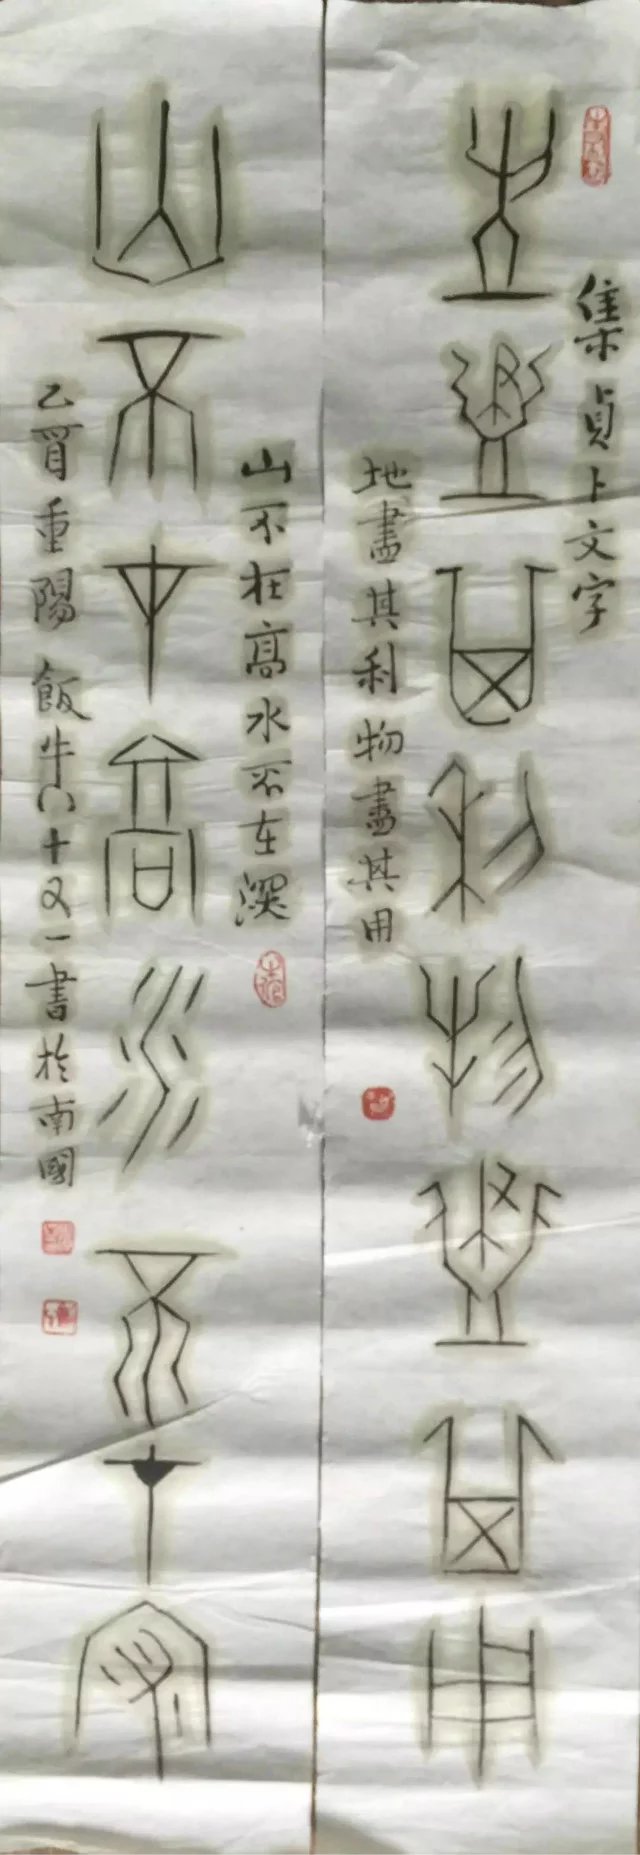 集貞卜文字
地盡其利物盡其用
地盡其利物盡其用
山不在高水不在深
山不在高水不在深
乙酉重陽飯牛八十又一書於南國